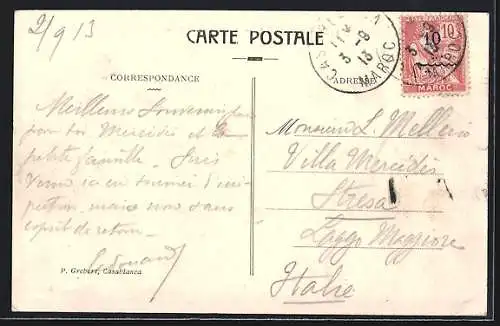 2/9 13
CARTE POSTALE
CORRESPONDANCE
ADRESSE
POSTE FRANÇAISE
10 10
MAROC
3 -9 13
MAROC
Meilleurs Souvenirs
pour toi Mercédès et la
petite famille. Suis
venu ici en tournée d'ins-
pection, mais non sans
esprit de retour.
Edouard
P. Grebert, Casablanca
Monsieur L. Mellerio
Villa Mercédès
Stresa
Laggo Maggiore
Italie